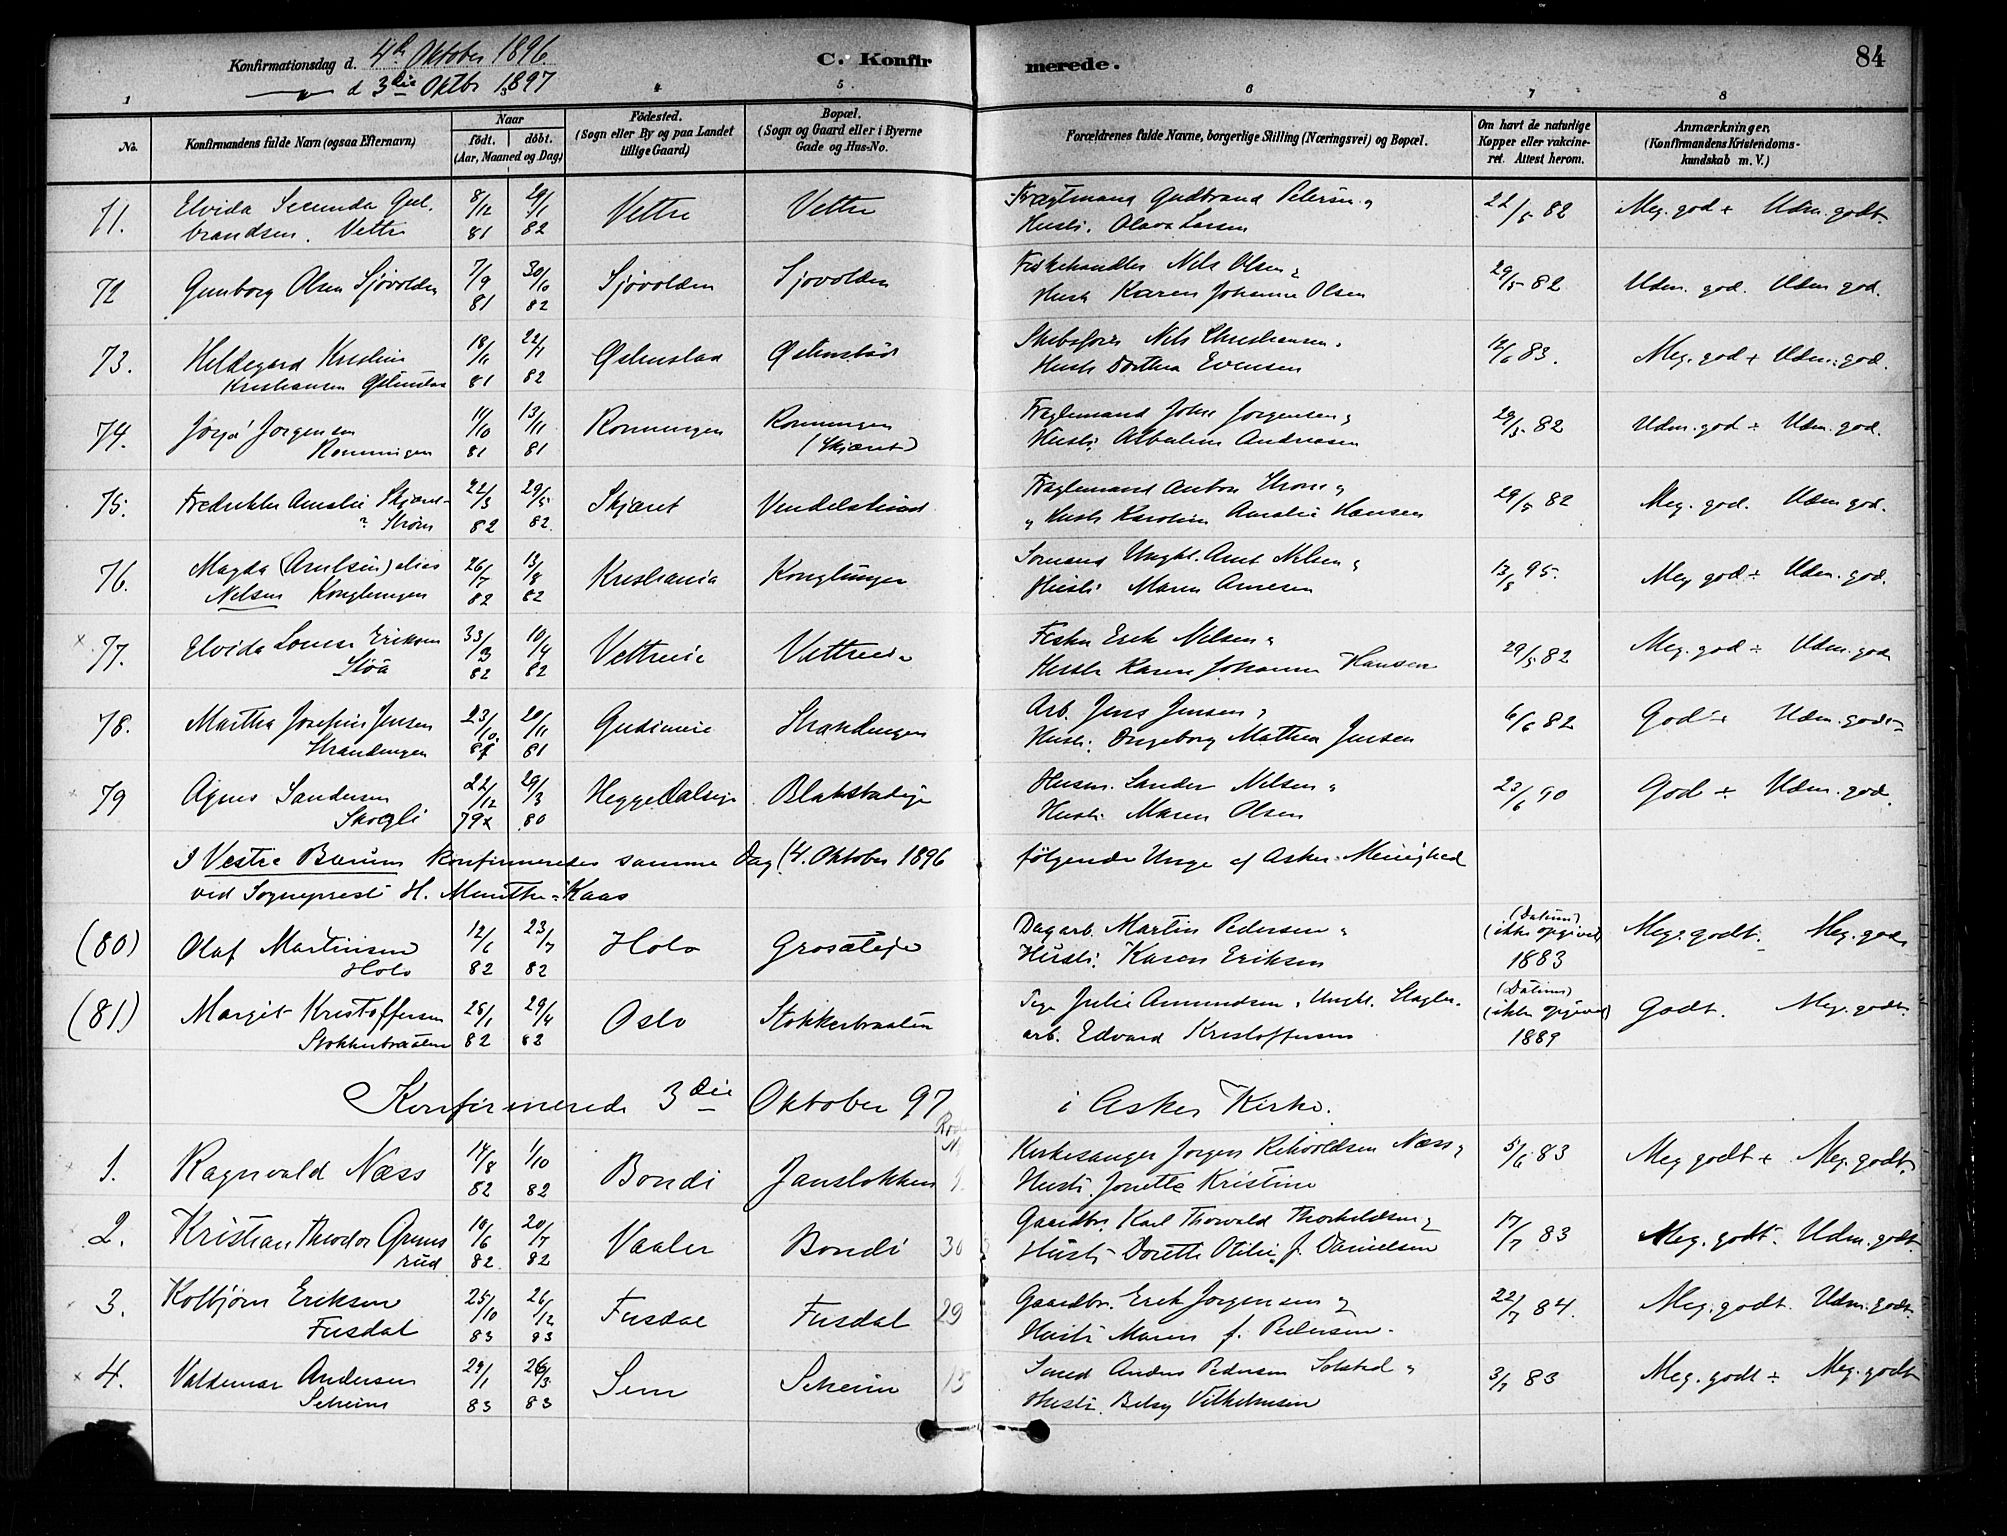 Konfirmationsdag d. 4de Oktober 1896.
d 3die Oktbr 1897
C. Konfirmerede.
84
1 4 5 6 7 8
No. Konfirmandens fulde Navn (ogsaa Efternavn) Naar født. døbt. (Aar, Maaned og Dag) Fødested. (Sogn eller By og paa Landet tillige Gaard) Bopæl. (Sogn og Gaard eller i Byerne Gade og Hus-No. Forældrenes fulde Navne, borgerlige Stilling (Næringsvei) og Bopæl. Om havt de naturlige Kopper eller vakcineret. Attest herom. Anmærkninger. (Konfirmandens Kristendomskundskab m. V.)
71. Elvida Secunda Gulbrandsen. Vettre 8/12 81 29/1 82 Vettre Vettre Fragtmand Gudbrand Petersen Hustr. Olava Larsen 22/5 82 Meg. god ÷ Udm. godt.
72 Gunborg Olsen Sjøvolden 7/9 81 30/10 82 Sjøvolden Sjøvolden Fiskehandler Nils Olsen Hustr Karen Johanne Olsen 29/5 82 Udm. god. Udm god.
73. Hildegard Kristine Kristiansen Østenstad 18/11 81 22/1 82 Østenstad Østenstad Skibsfører Nils Christiansen. Hustr Dorthea Evensen 12/6 83. Meg. god ÷ Udm. god.
74. Jørgen Rønningen 11/10 81 13/11 81 Rønningen Rønningen (Skjæret) Fragtmand John Jørgensen Hustr. Albertine Andresen 29/5 82 Udm. god ÷ Udm. god.
75. Fredrikke Amalie Skjæret Strøm 22/3 82 29/5 82. Skjæret Vendelsund Fragtmand Anton Strøm Hustr Karoline Amalie Hansen 29/5 82 Meg. god. Udm god.
76. Magda (Arntsen) alias Nelsen Konglungen 26/7 82 13/8 82 Kristiania Konglungen Sømand Ungk. Arnt Nelsen Hustr. Maren Arnesen 13/5 95. Meg god ÷ Udm. god.
77. Elvida Lovise Eriksen Støa 33/3 82 10/4 82 Vettreie Vettreie Fisker Erik Nelsen Hustr Karen Johanne Hansen 29/5 82 Meg. god ÷ Udm. god
78. Martha Josefine Jensen Strandengen 23/10 81 20/11 81 Gudimeie Strandengen Arb. Jens Jensen Hustr. Ingeborg Mathea Jensen 6/6 82 God ÷ Udm. god
79 Agnes Sandersen Skogli 22/12 79 29/3 80 Heggedalseje Blakstadeje Husm. Sander Nelsen Hustr. Maren Olsen 23/6 90 God ÷ Udm. god.
I Vestre Bærum konfirmeredes samme Dag (4. Oktober 1896 følgende Unge af Asker Menighed
ved Sogneprest H. Munthe-Kaas
(80) Olaf Martinsen Holo 12/6 82 23/7 82 Holo Grosæteje Dagarb. Martin Pedersen Hustr. Karen Eriksen (Datum) (ikke opgivet) 1883 Meg. godt. Meg. god.
(81) Margit Kristoffersen Stokkerbraaten 25/1 82 29/4 82 Oslo Stokkerbraaten Pige Julie Amundsen, Ungk. Slagterarb. Edvard Kristoffersen (Datum) (ikke opgivet) 1889 Godt. Meg. godt.
Konfirmerede 3die Oktober 97 i Asker Kirke.
1. Ragnvald Næss 14/8 82 1/10 82 Bondi Jansløkken 9 Kirkesanger Jørgen Rehvoldsen Næss Hustr. Jonette Kristine 5/6 83 Meg godt ÷ Meg. godt.
2. Kristian Theodor Grønsrud 10/6 82. 20/7 82 Vaaler Bondi 30 Gaardbr. Karl Thorvald Thorkildsen Hustr Dorette Otilie f. Danielsen 17/7 83 Meg. godt. Udm. godt.
3. Kolbjørn Eriksen Fusdal 25/10 83 26/12 83 Fusdal Fusdal 29 Gaardbr. Erik Jørgensen Hustr Maren f. Pedersen. 22/7 84. Meg. godt. Udm. godt.
4. Valdemar Andersen Semeie 29/1 83 26/3 83 Sem Semeie 15 Smed Anders Pedersen Solstad Hustr. Betsy Vilhelmsen 3/7 83 Meg. godt ÷ Meg. godt